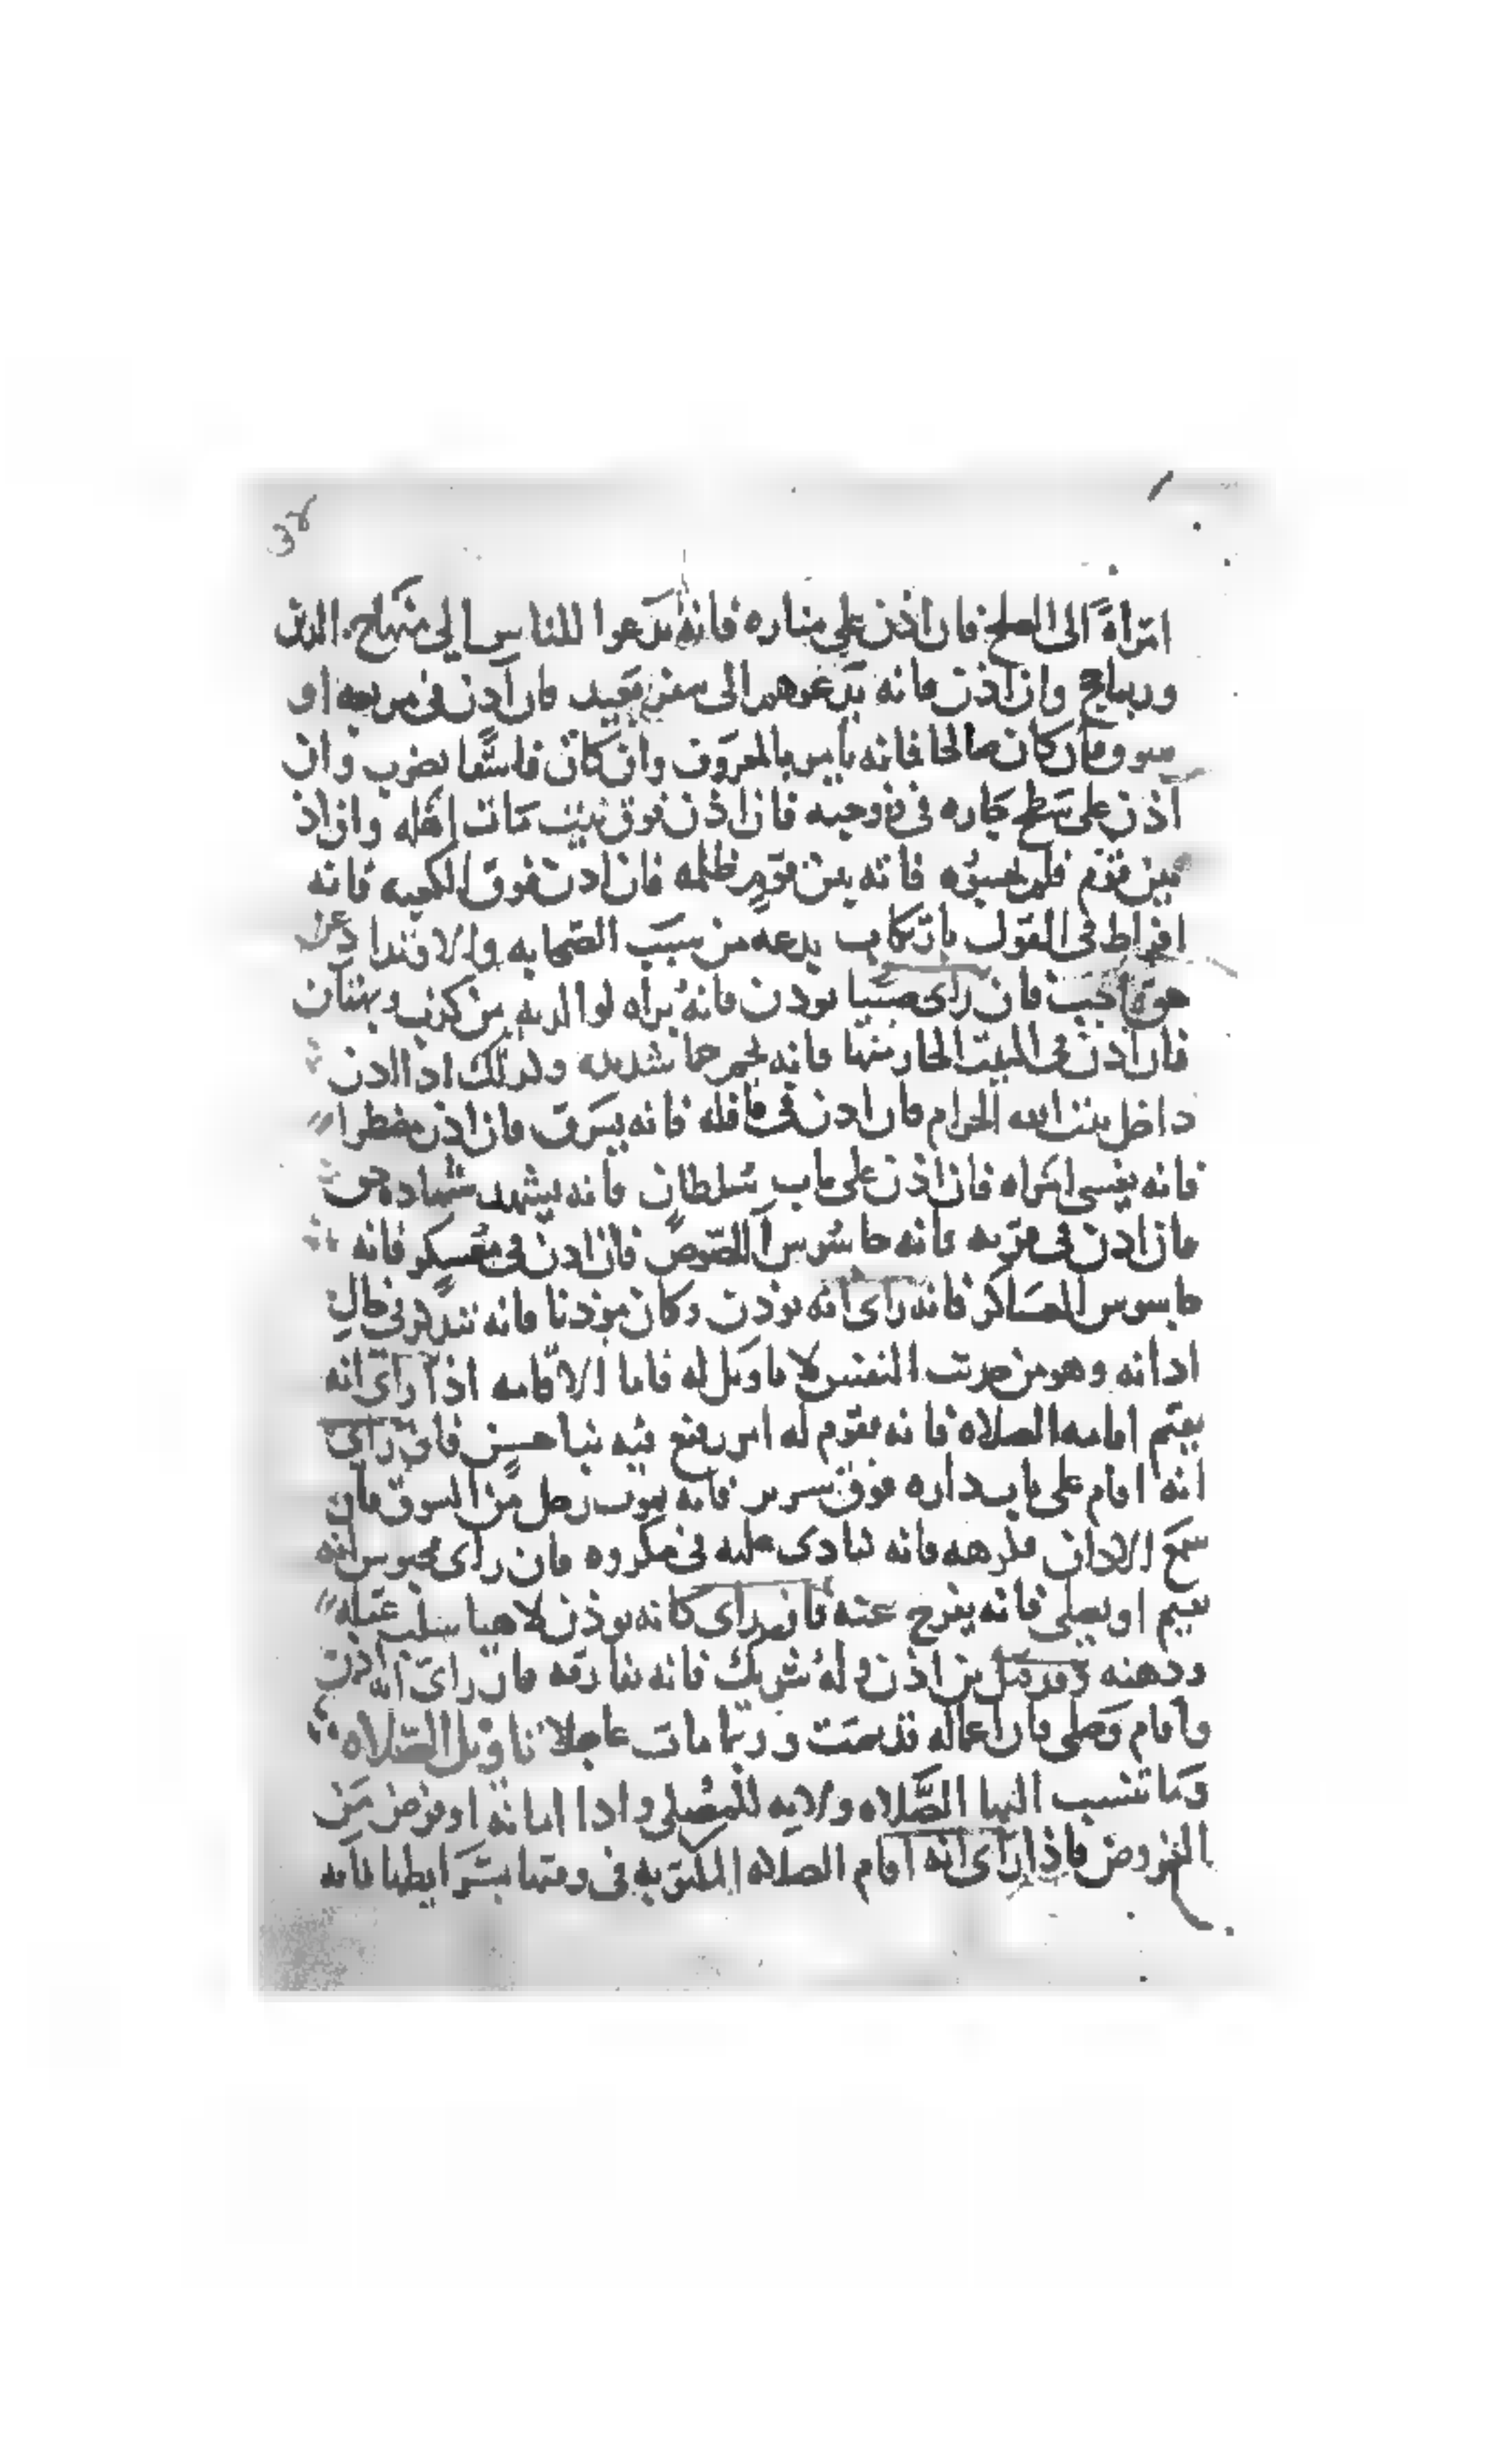 امراة الى الصلح فان اذن على مناره فانه يدعوا للناس الى منهاج الدين
وربما حج وان اذن فانه يدعوهم الى سفر بعيد فان اذن في مربعه او
سوق فان كان صالحا فانه يامر بالمعروف وان كان فاسقا يضرب وان
اذن على سطح جاره في زوجيه فان اذن فوق بيت مات اهله وان اذن
بين قوم فلم يجيبوه فانه بين قوم ظلمه فان اذن فوق الكعبه فانه
افراط في القول بارتكاب بدعه من سبب الصحابه والاقتدا
فان راى صبيا يوذن فانه براه لوالديه من كذب وبهتان
فان اذن في البيت الحار منها فانه يحم حما شديده وكذلك اذا اذن
داخل بيت الله الحرام فان اذن في قافله فانه يسرق فان اذن مضطرا
فانه يغشى امراه فان اذن على باب سلطان فانه يشهد شهاده حق
فان اذن في قريه فانه جاسوس اللصوص فان اذن في معسكر فانه
جاسوس العساكر فانه راى انه يوذن وكان موذنا فانه
اذانه وهو من حديث النفس لا تاويل له فاما الاقامه اذا راى انه
يقيم اقامه الصلاه فانه يقوم له امر رفيع فيه ثنا حسن فان راى
انه اقام على باب داره فوق سرير فانه يموت رجل من السوق فان
سمع الاذان فكرهه فانه ينادى عليه في مكروه فان راى محبوس انه
يقيم او يصلي فانه يفرج عنه فان راى كانه يوذن لاهيا سلب عقله
ودهنه وقد قيل من اذن وله شريك فانه يفارقه فان راى انه اذن
واقام وصلى فان اعماله قد تمت وربما مات عاجلا تاويل الصلاه
وما تنسب اليها الصلاه ولايه للمصلي واداء امانه او فرض من
الفروض فاذا راى انه اقام الصلاه المكتوبه في وقتها بشرايطها فانه